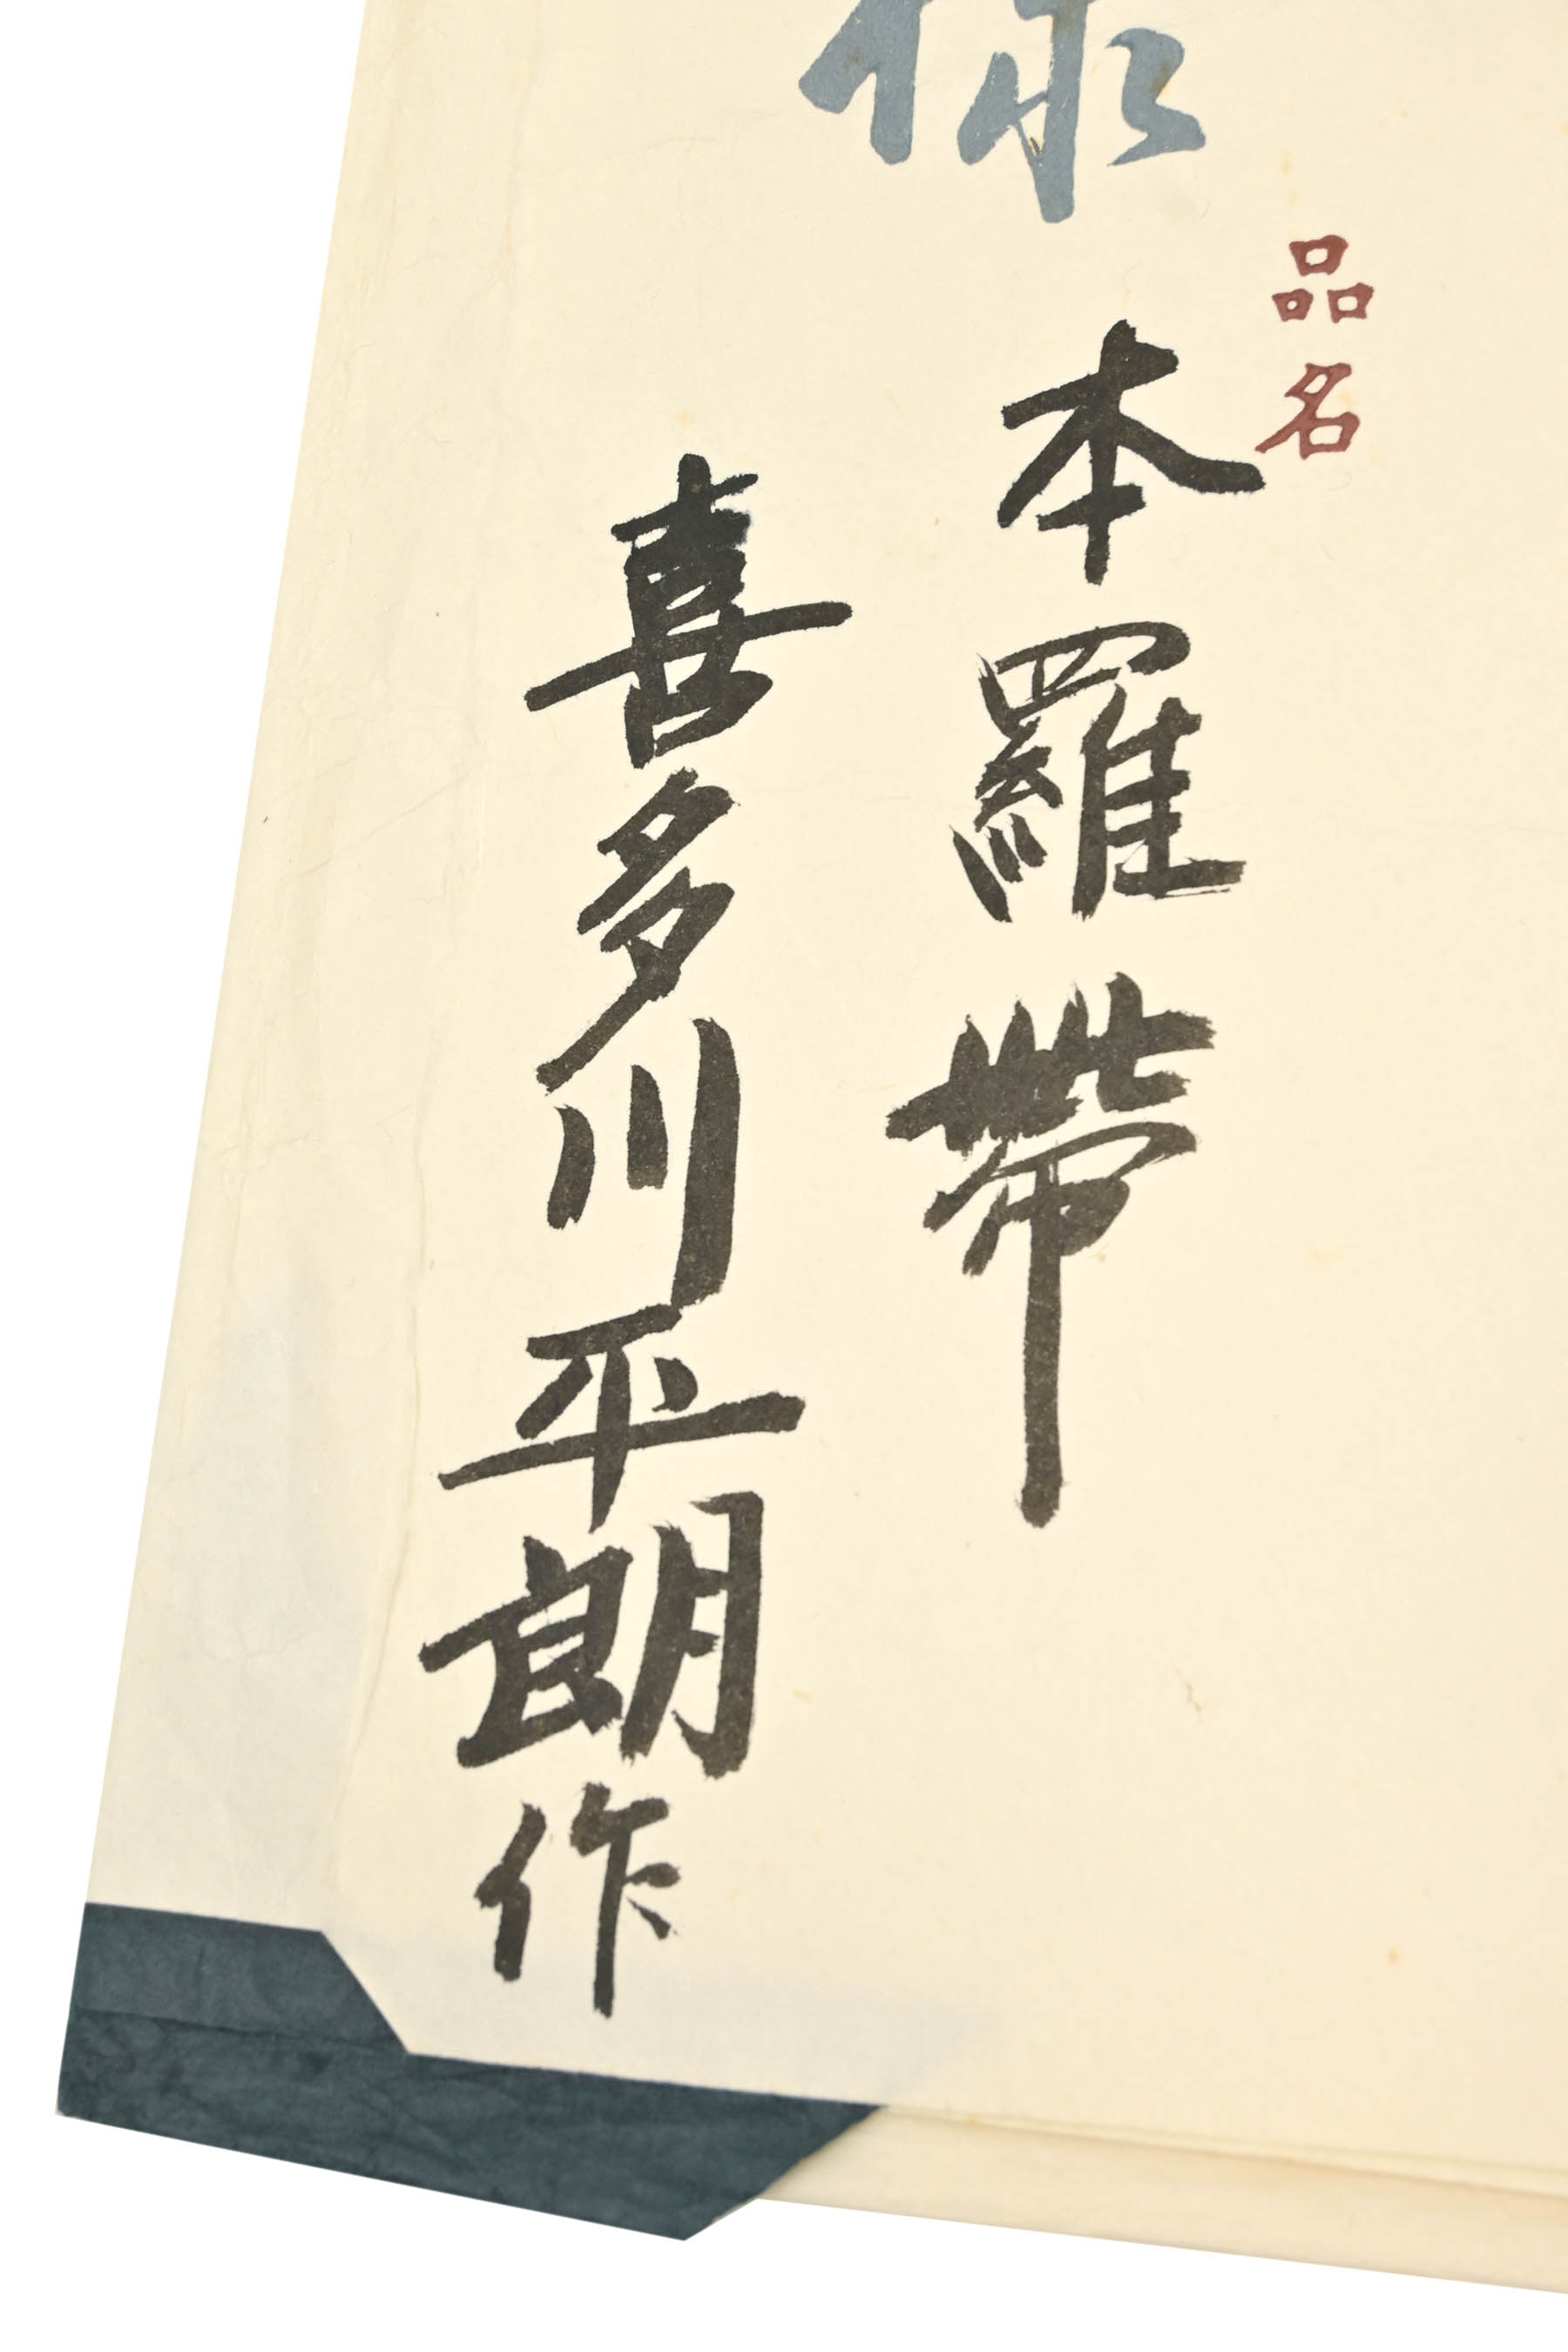 様
品名
本羅帶
喜多川平朗作